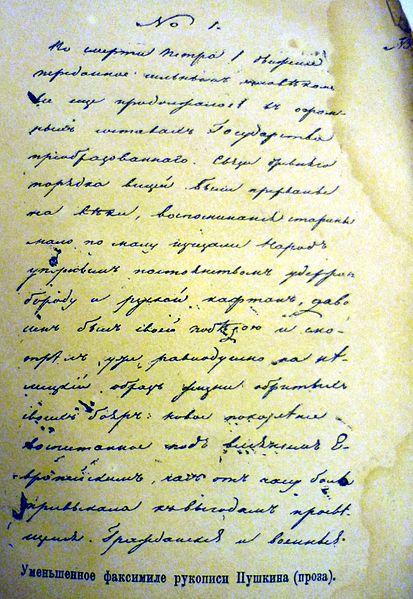 No 1.
По смерти Петра I движение
переданное сильнымъ человѣкомъ
все еще продолжалось въ огром-
ныхъ составахъ Государства
преобразованнаго. Связи древняго
порядка вещей были прерваны
на вѣки, воспоминанія старины
мало по малу исчезали. Народъ
упрямымъ постоянствомъ удержавъ
бороду и русской кафтанъ, дово-
ленъ былъ своей побѣдою и смо-
трѣлъ уже равнодушно на нѣ-
мецкій образъ жизни обритыхъ
своихъ бояръ: новое поколѣніе
воспитанное подъ вліяніемъ Е-
вропейскимъ, часъ отъ часу болѣе
привыкало къ выгодамъ просвѣ-
щенія. Гражданскіе и военные
Уменьшенное факсимиле рукописи Пушкина (проза).